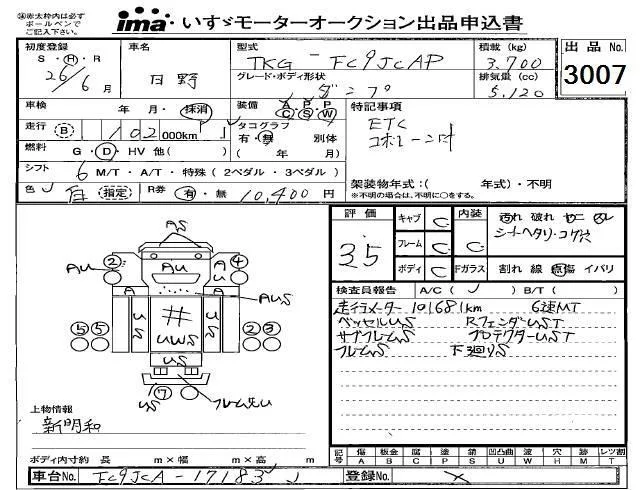 ※赤太枠内は必ずボールペンでご記入下さい。
ima いすゞモーターオークション出品申込書
初度登録 S・H・R 26年 6月
車名 日野
型式 TKG-FC9JCAP
積載(kg) 3,700
出品No. 3007
グレード・ボディ形状 ダンプ
排気量(cc) 5,120
車検 年・月・抹消
装備 A C P S P W
特記事項
走行 B 102,000km
タコグラフ 有・無 別体 ( 年 / 月)
ETC
コボレーン付
燃料 G・D・HV 他( )
シフト 6 M/T・A/T・特殊(2ペダル・3ペダル)
架装物年式:( 年式)・不明
色 白 指定 R券 有・無 10,400円
※不明の場合は、不明に○をする。
評価 3.5
キャブ C
内装 C
汚れ 破れ セニ ヌレ
シートヘタリ・コゲ穴
フレーム C
ボディ C
Fガラス 割れ 線 点傷 イバリ
検査員報告 A/C( ) B/T( )
走行メーター 101681km 6速MT
ベッセルUS RフェンダーUST
サブフレームS プロテクターUST
フレームS 下廻りS
② AU AU ④ AU
AS
A A
AUS
US US
UWS
⑤⑤ ②③
US
US ⑦
上物情報
新明和
ボディ内寸約 長 m×幅 m×高 m
記号 傷 A 板金 B 腐 C 塗 P 錆 S 凹凸曲 U 波 W 穴 H 跡 M レツ割 T
車台No. FC9JCA-17183
登録No.